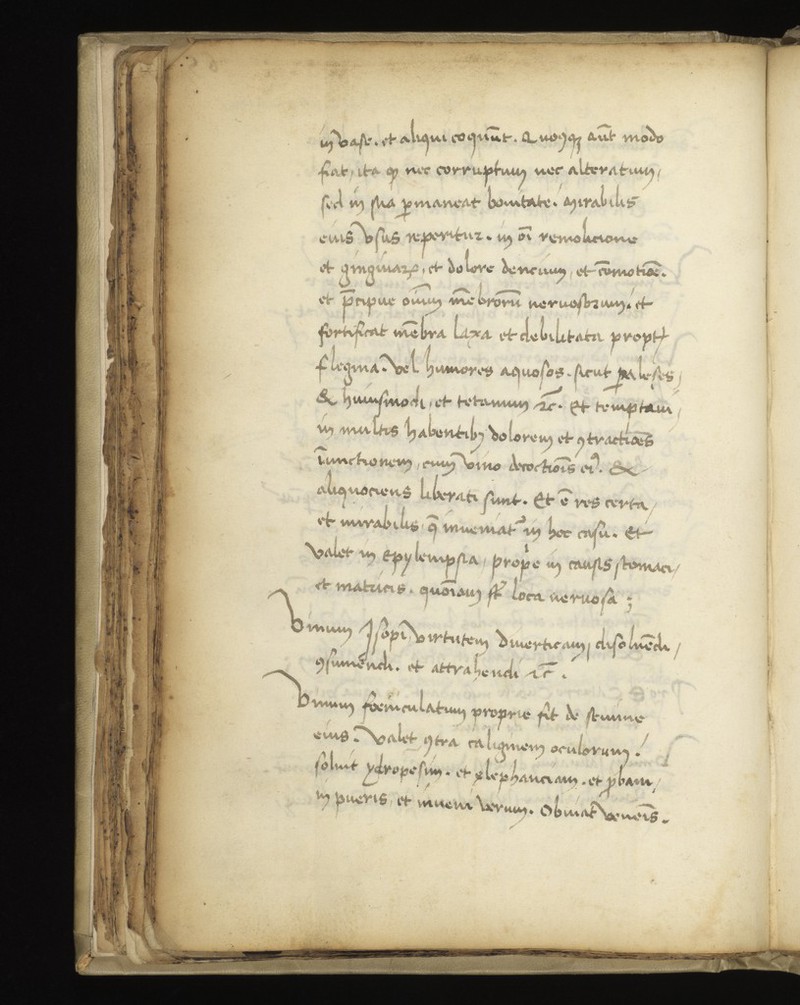 in vase. et aliqui coquūt. Quocūqꝫ aūt modo
fiat, ita ꝙ nec corruptum nec alteratum,
sed in sua ꝑmaneat bonitate. Mirabilis
eius Vsus reperitur. in oī remolicione
et gingivaꝝ, et dolore dencium, et cōmotiōe.
et p̄cipue oīum mēbrorū nervosorum. et
fortificat mēbra laxa et debilitata propt̄
flegma. Vel humores aquosos. sicut ꝑaleses,
& huiusmodi, et tetanum ⁊c̄. Et temptavi,
in multis habentibꝫ dolorem et ꝯtractiōes
īunctionem, cum vino decoctiōis ei⁹. &
aliquociens liberati sunt. Et ē res certa,
et mirabilis, q̄ inveniat᷑ in hoc casu. Et
Valet in Epylempsia, propͥe in causis stomaci,
et matricis. quoīam st̄ loca nervosa ;
Vinum Isopi, Virtutem diverticam, disolvēdi,
ꝯsumēndi. et attrahendi ⁊c̄.
Vinum foeniculatum proprie fit de semine
eius. Valet ꝯtra caliginem oculorum.
solvit ydropesim. et elephanciam. et ꝓbavi,
in pueris, et inveni verum. Obviat veneīs.